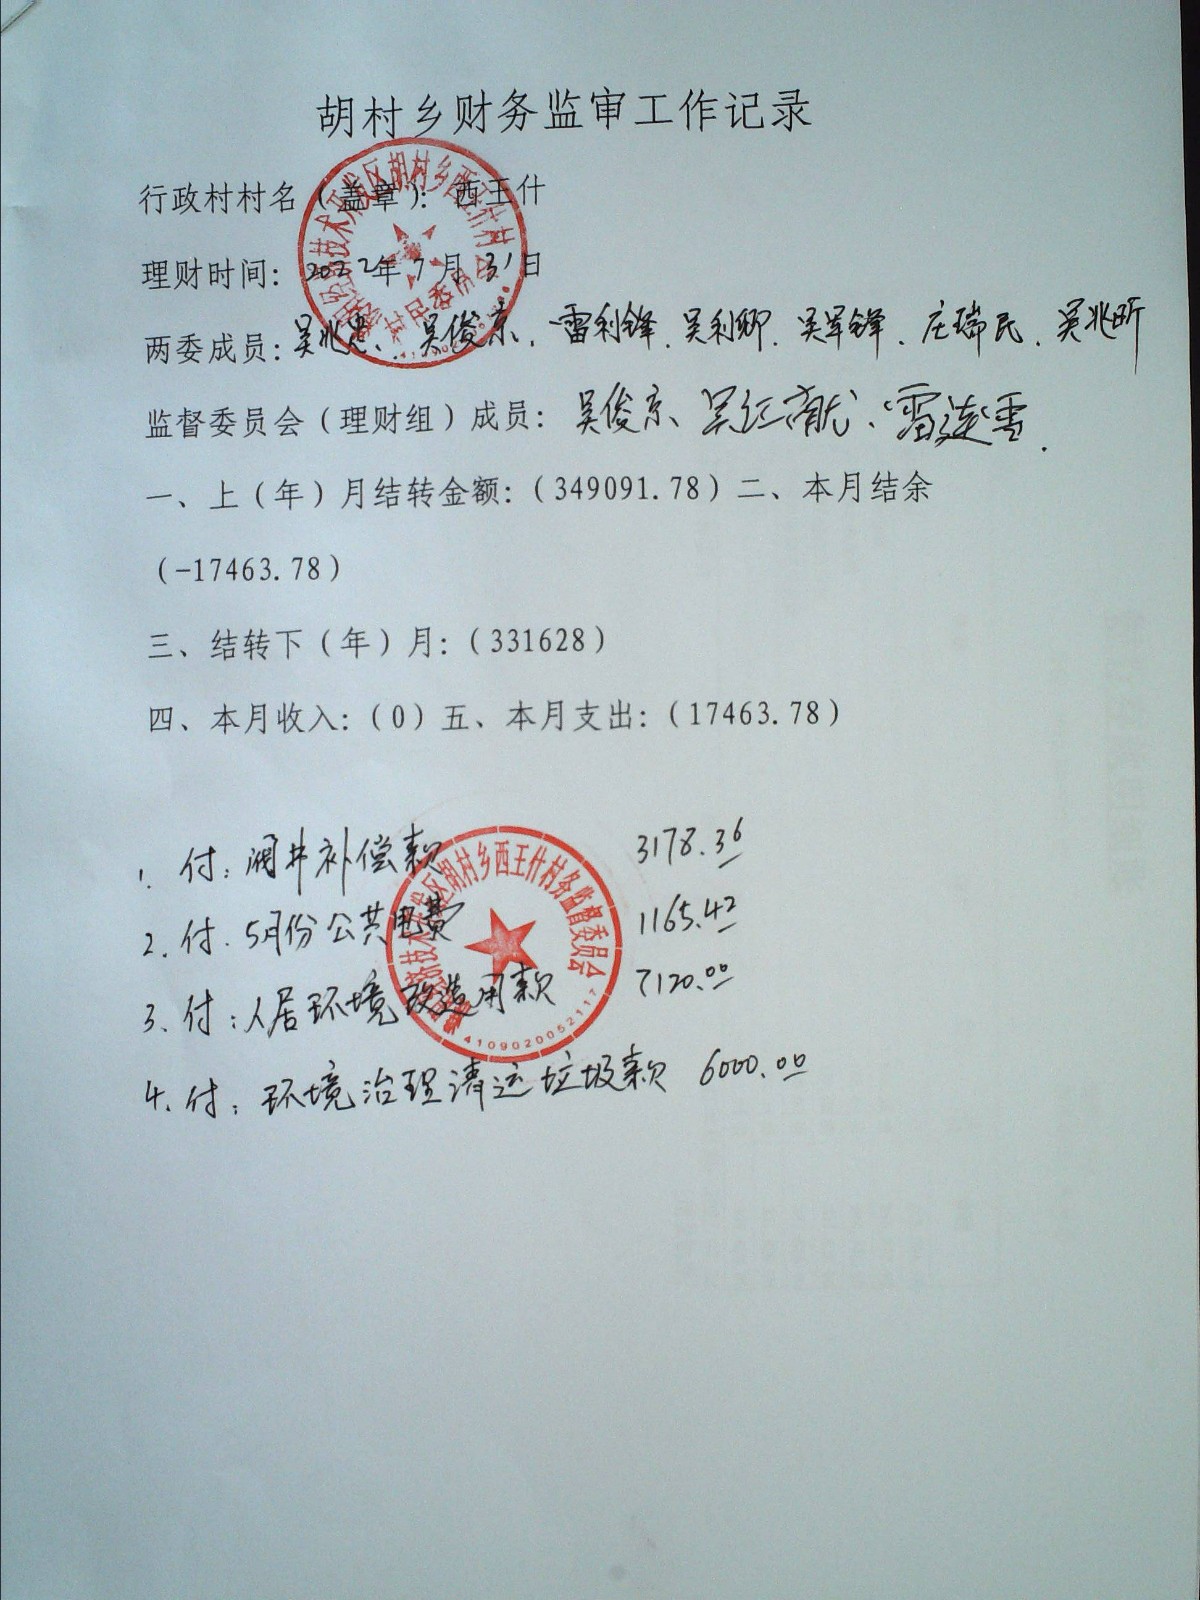 胡村乡财务监审工作记录
行政村村名（盖章）：西王什
理财时间：2022年7月31日
两委成员：吴兆忠、吴俊京、雷利锋、吴利卿、吴军锋、庄瑞民、吴兆昕
监督委员会（理财组）成员：吴俊京、吴红献、雷连雪.
一、上（年）月结转金额：（349091.78）二、本月结余
（-17463.78）
三、结转下（年）月：（331628）
四、本月收入：（0）五、本月支出：（17463.78）
1. 付：阀井补偿款 3178.36
2. 付. 5月份公共电费 1165.42
3、付：人居环境改造用款 7120.00
4、付：环境治理清运垃圾款 6000.00
技术开发区胡村乡西王什村
技术开发区胡村乡西王什村务监督委员会
4109020052117